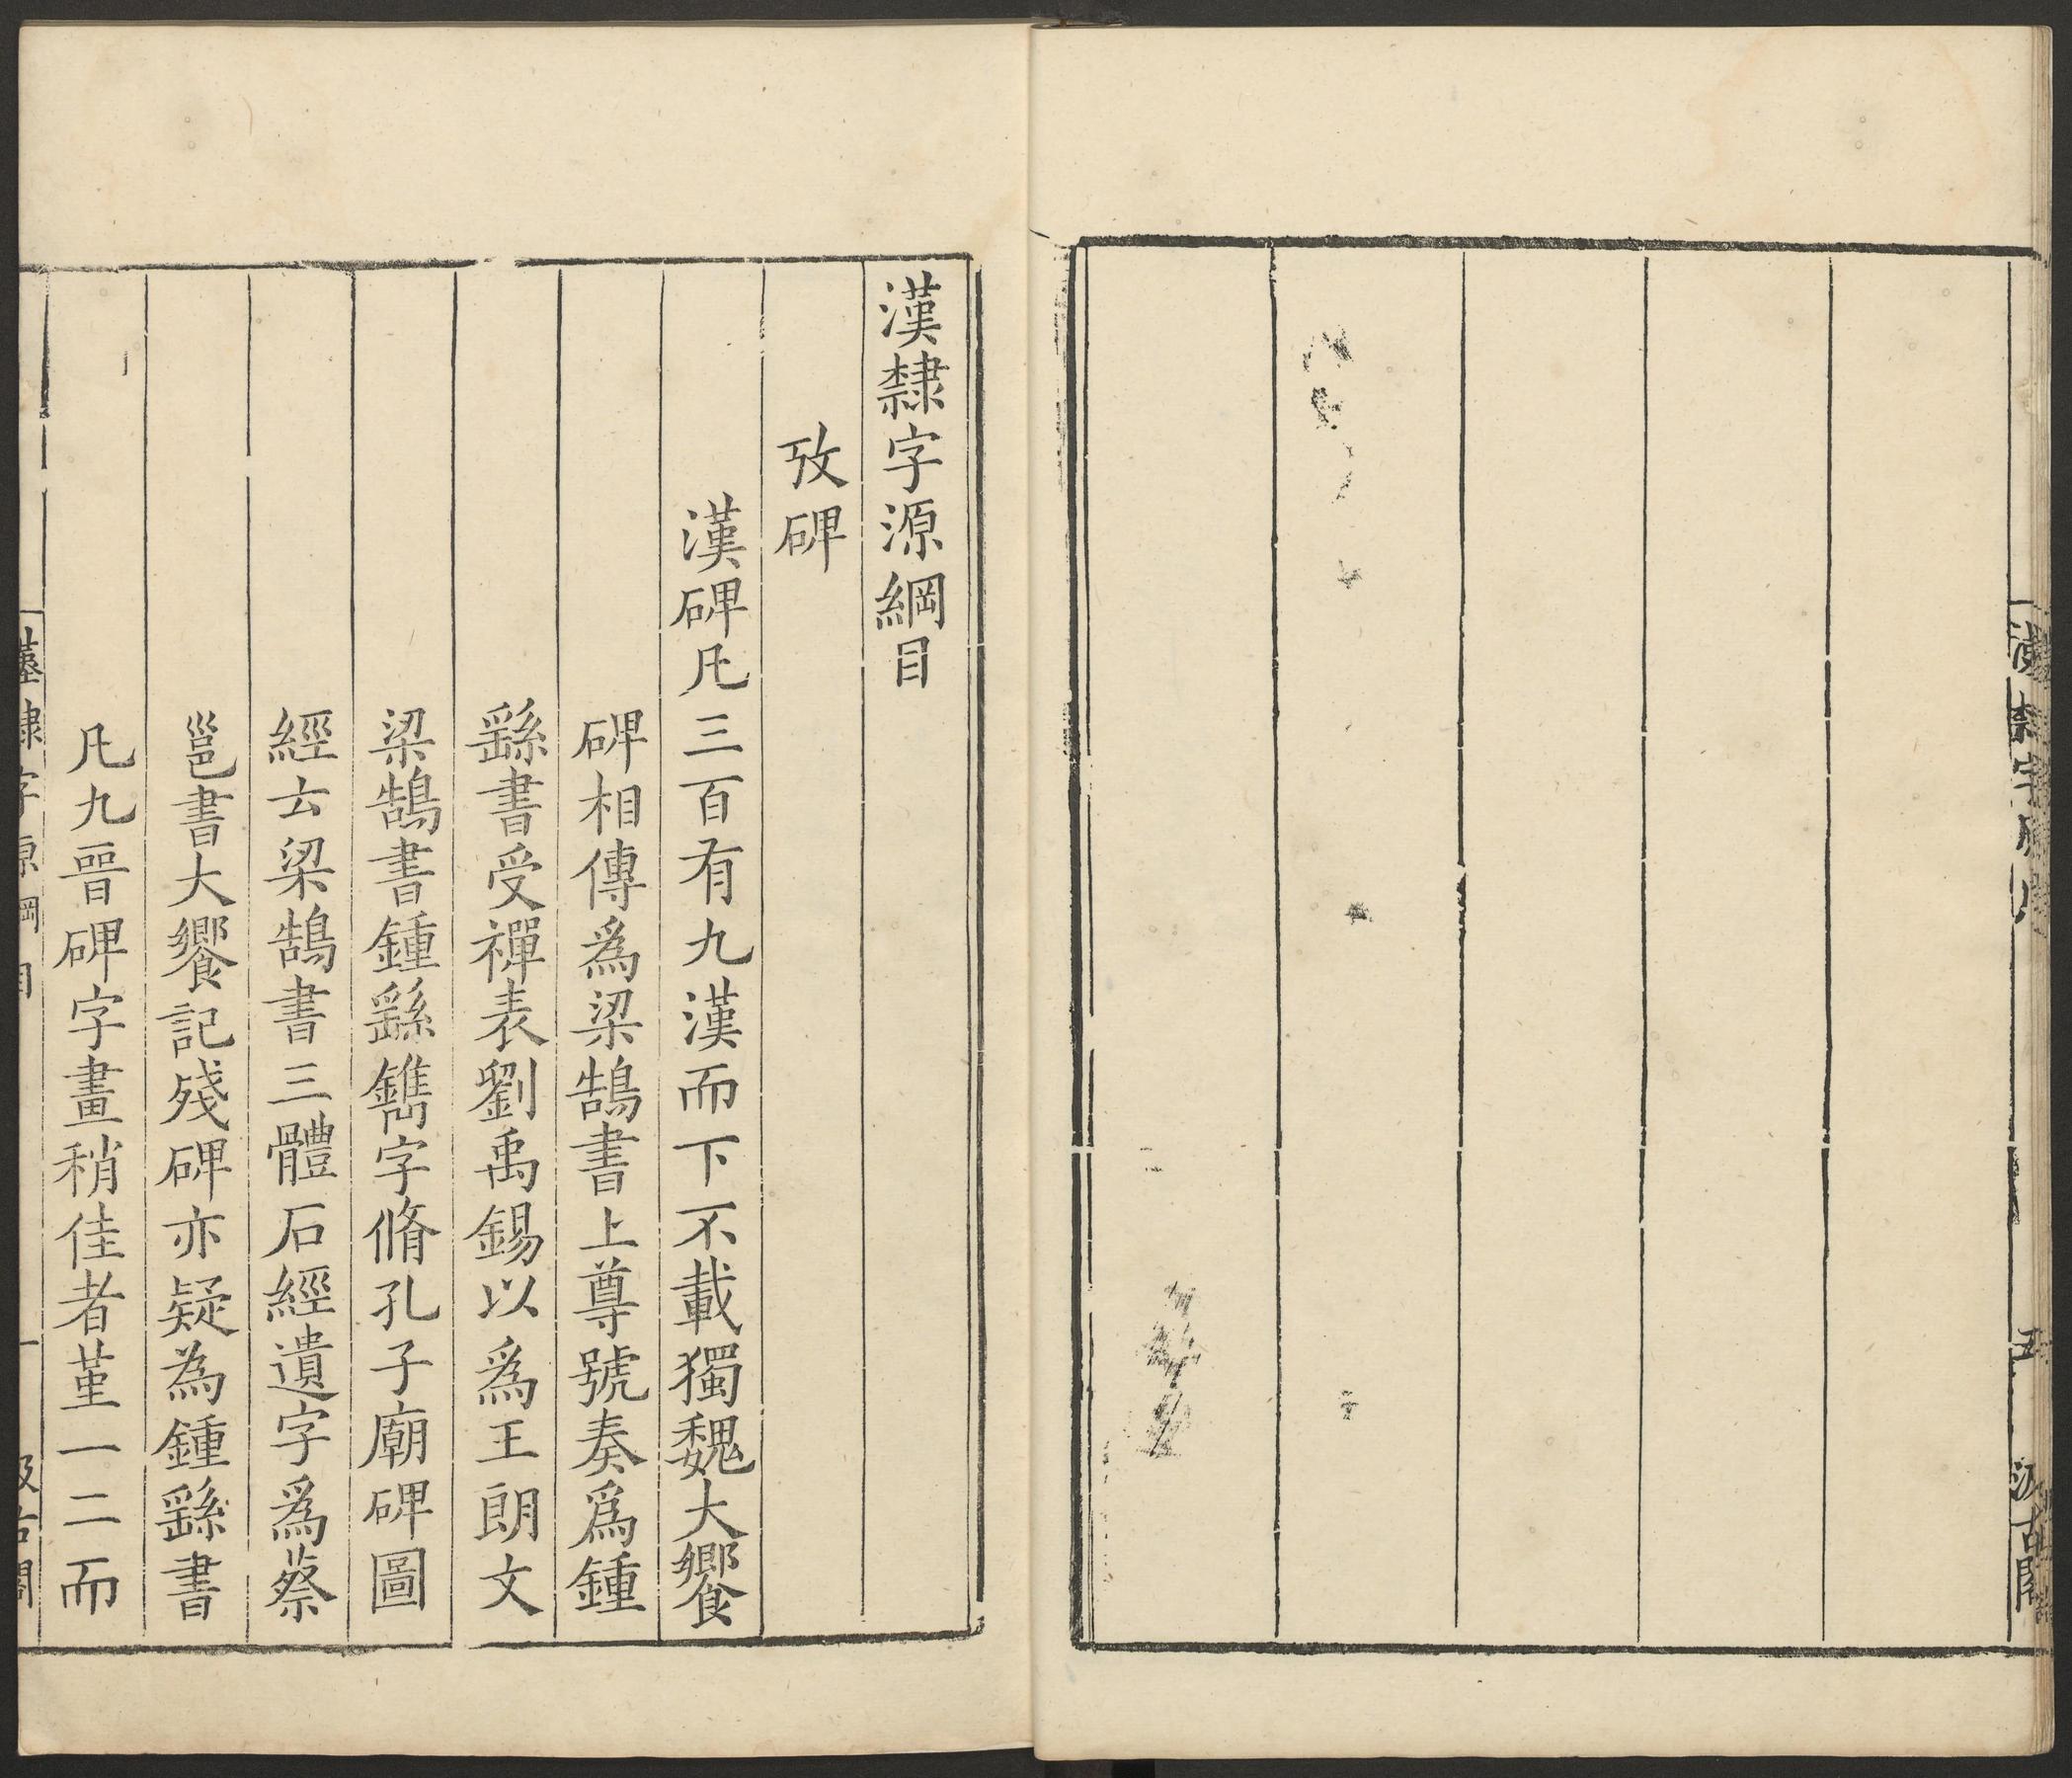 漢隸字源
五
汲古閣
漢隸字源綱目
攷碑
漢碑凡三百有九漢而下不載獨魏大饗
碑相傳爲梁鵠書上尊號奏爲鍾
繇書受禪表劉禹錫以爲王朗文
梁鵠書鍾繇鐫字脩孔子廟碑圖
經云梁鵠書三體石經遺字爲蔡
邕書大饗記殘碑亦疑為鍾繇書
凡九晉碑字畫稍佳者堇一二而
漢隸字源綱目
一
汲古閣